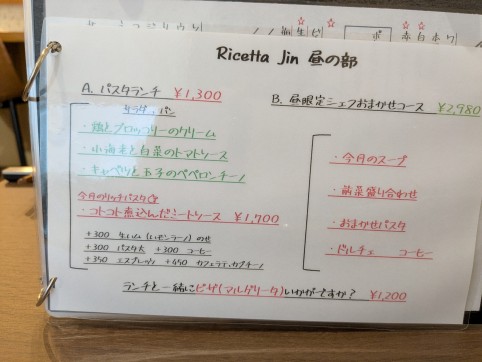 Ricetta Jin 昼の部
A. パスタランチ ¥1,300
サラダ、パン
・鶏とブロッコリーのクリーム
・小海老と白菜のトマトソース
・キャベツと玉子のペペロンチーノ
今月のリッチパスタ☆
・コトコト煮込んだミートソース ¥1,700
+300 生ハム(いポンラーノ)のせ
+300 パスタ大 +300 コーヒー
+350 エスプレッソ +450 カフェラテ,カプチーノ
B. 昼限定シェフおまかせコース ¥2,980
・今月のスープ
・前菜盛り合わせ
・おまかせパスタ
・ドルチェ コーヒー
ランチと一緒にピザ(マルゲリータ)いかがですか? ¥1,200